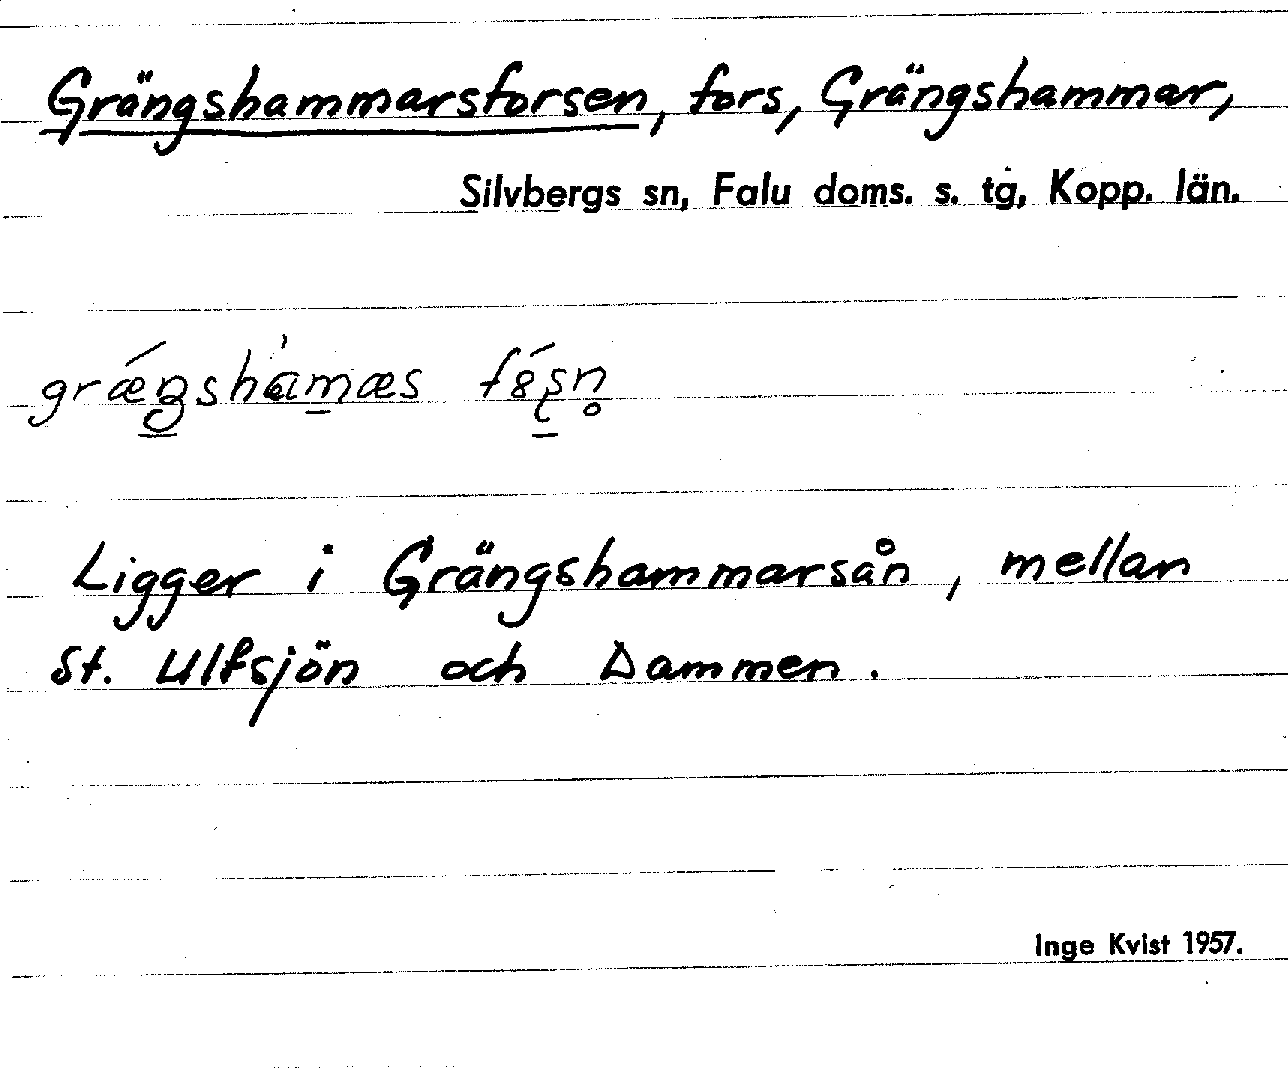 Grängshammarsforsen, fors, Grängshammar,
Silvbergs sn, Falu doms. s. tg, Kopp. län.
Ligger i Grängshammarsån, mellan
St. Ulfsjön och Dammen.
Inge Kvist 1957.